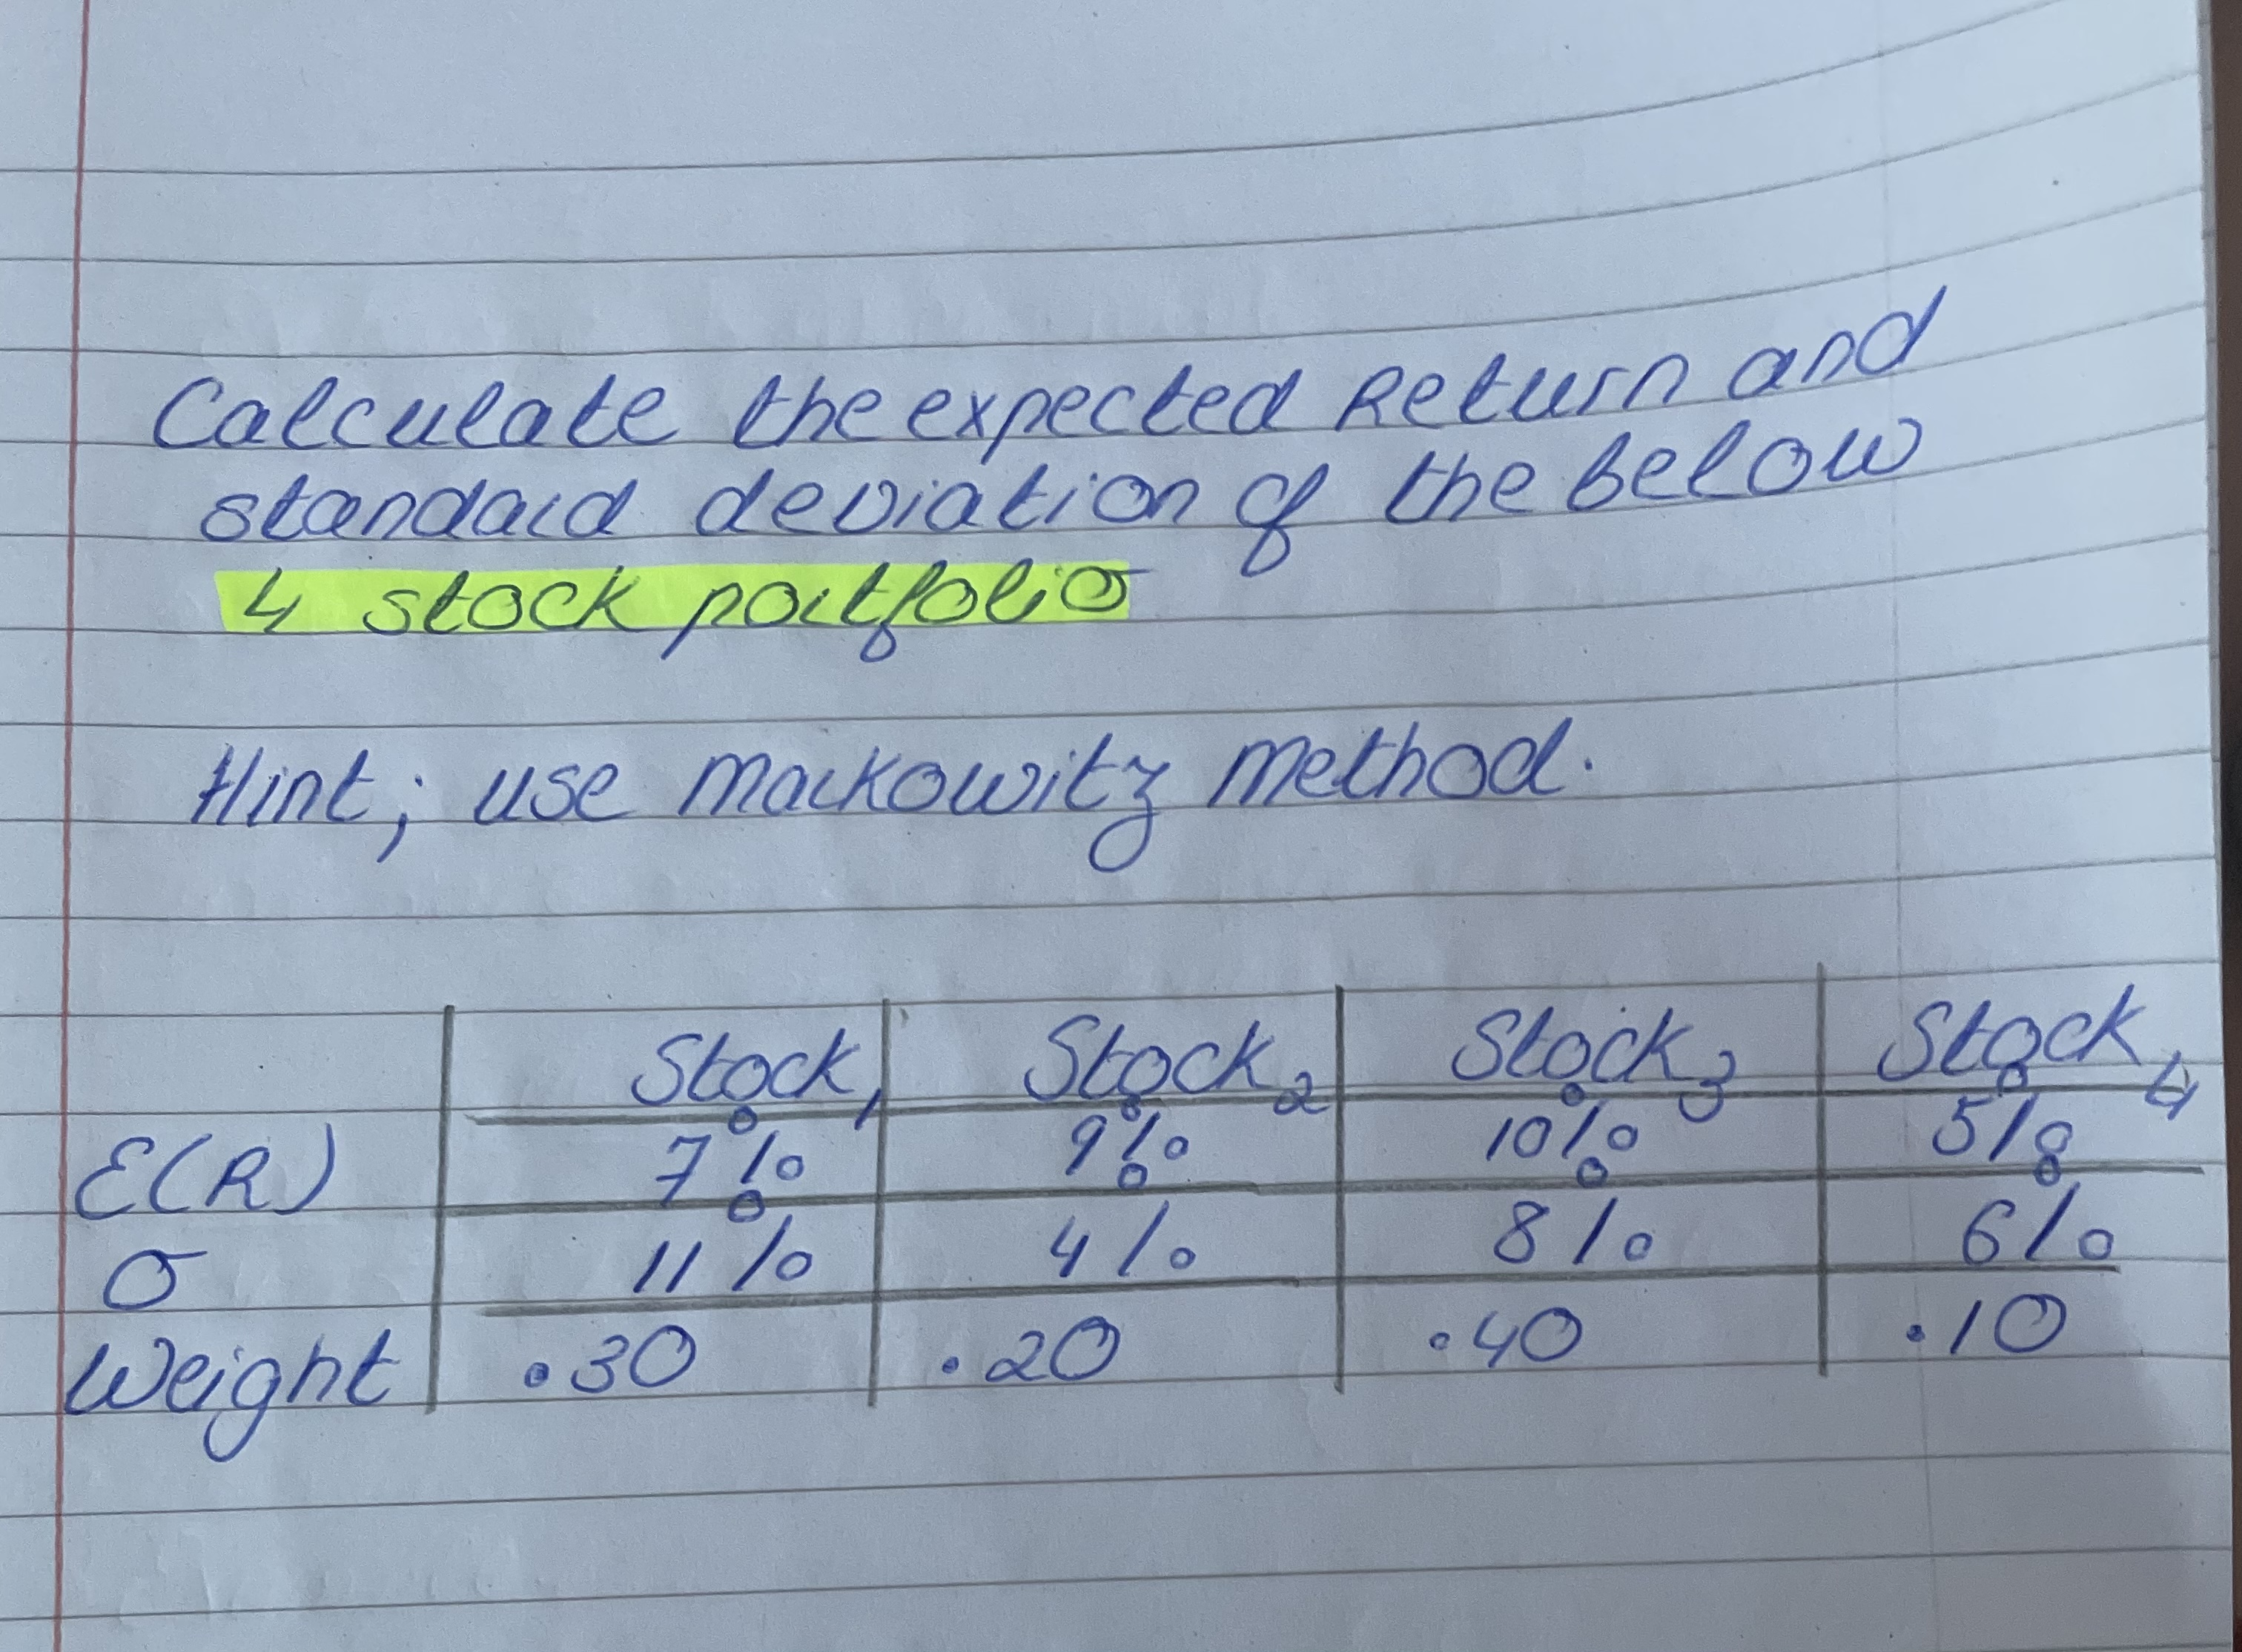 Calculate the expected Return and
standard deviation of the below
4 stock portfolio
Hint; use Markowitz Method.
Stock1 Stock2 Stock3 Stock4
E(R) 7% 9% 10% 5%
σ 11% 4% 8% 6%
Weight .30 .20 .40 .10